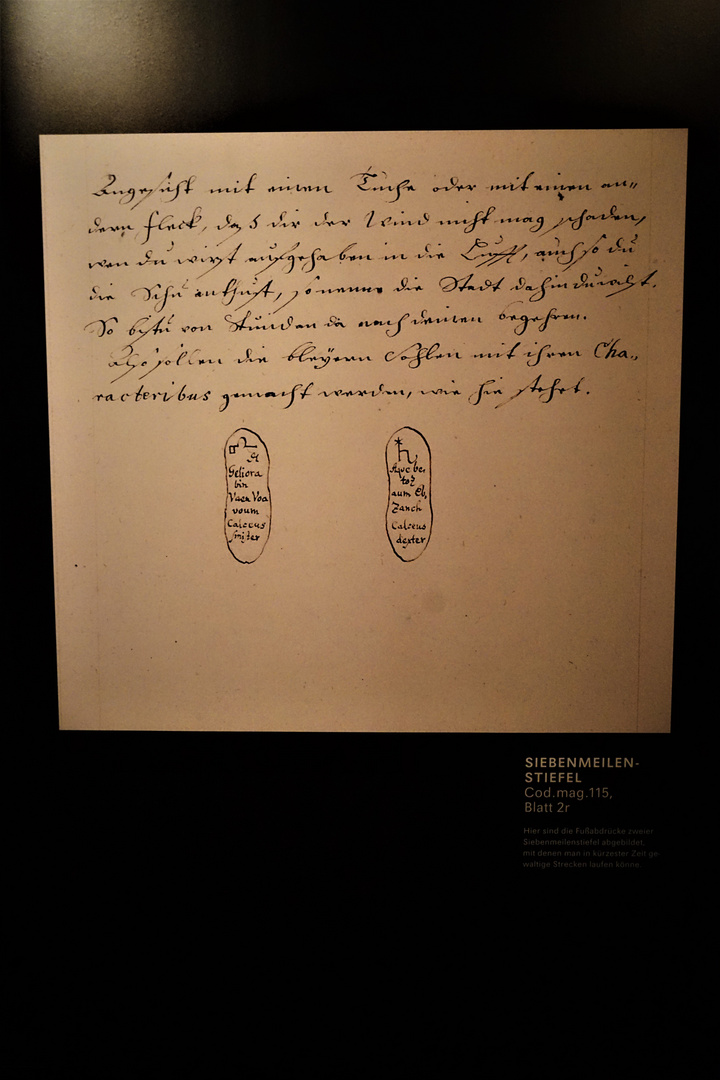 Angesicht mit einen Tuche oder mit einen an=
dern fleck, daß dir der Wind nicht mag schaden,
wen du wirst aufgehaben in die Lufft, auch so du
die Schu anthust, so nenne die Stadt dahin du wilst.
So bistu von Stunden da nach deinen begehren.
Also sollen die bleyern Sohlen mit ihren Cha=
racteribus gemacht werden, wie hie stehet.
Geliora
bin
Vaen Voa
voum
Calceus
sinister
aum Eb,
Zanch
Calceus
dexter
SIEBENMEILEN-
STIEFEL
Cod.mag.115,
Blatt 2r
Hier sind die Fußabdrücke zweier
Siebenmeilenstiefel abgebildet,
mit denen man in kürzester Zeit ge-
waltige Strecken laufen könne.